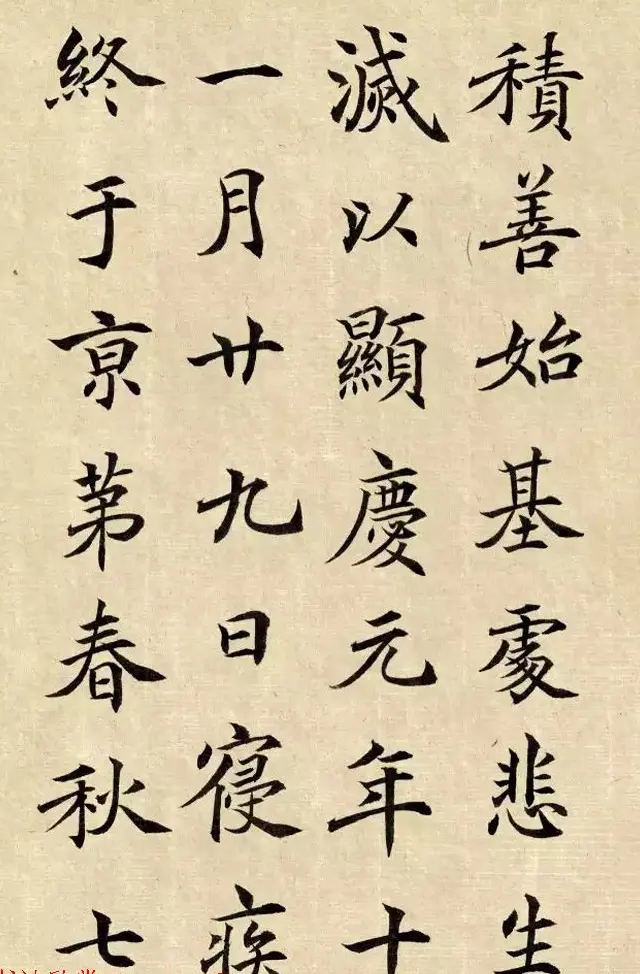 積善始基處悲生
滅以顯慶元年十
一月廿九日寑疾
終于京第春秋七